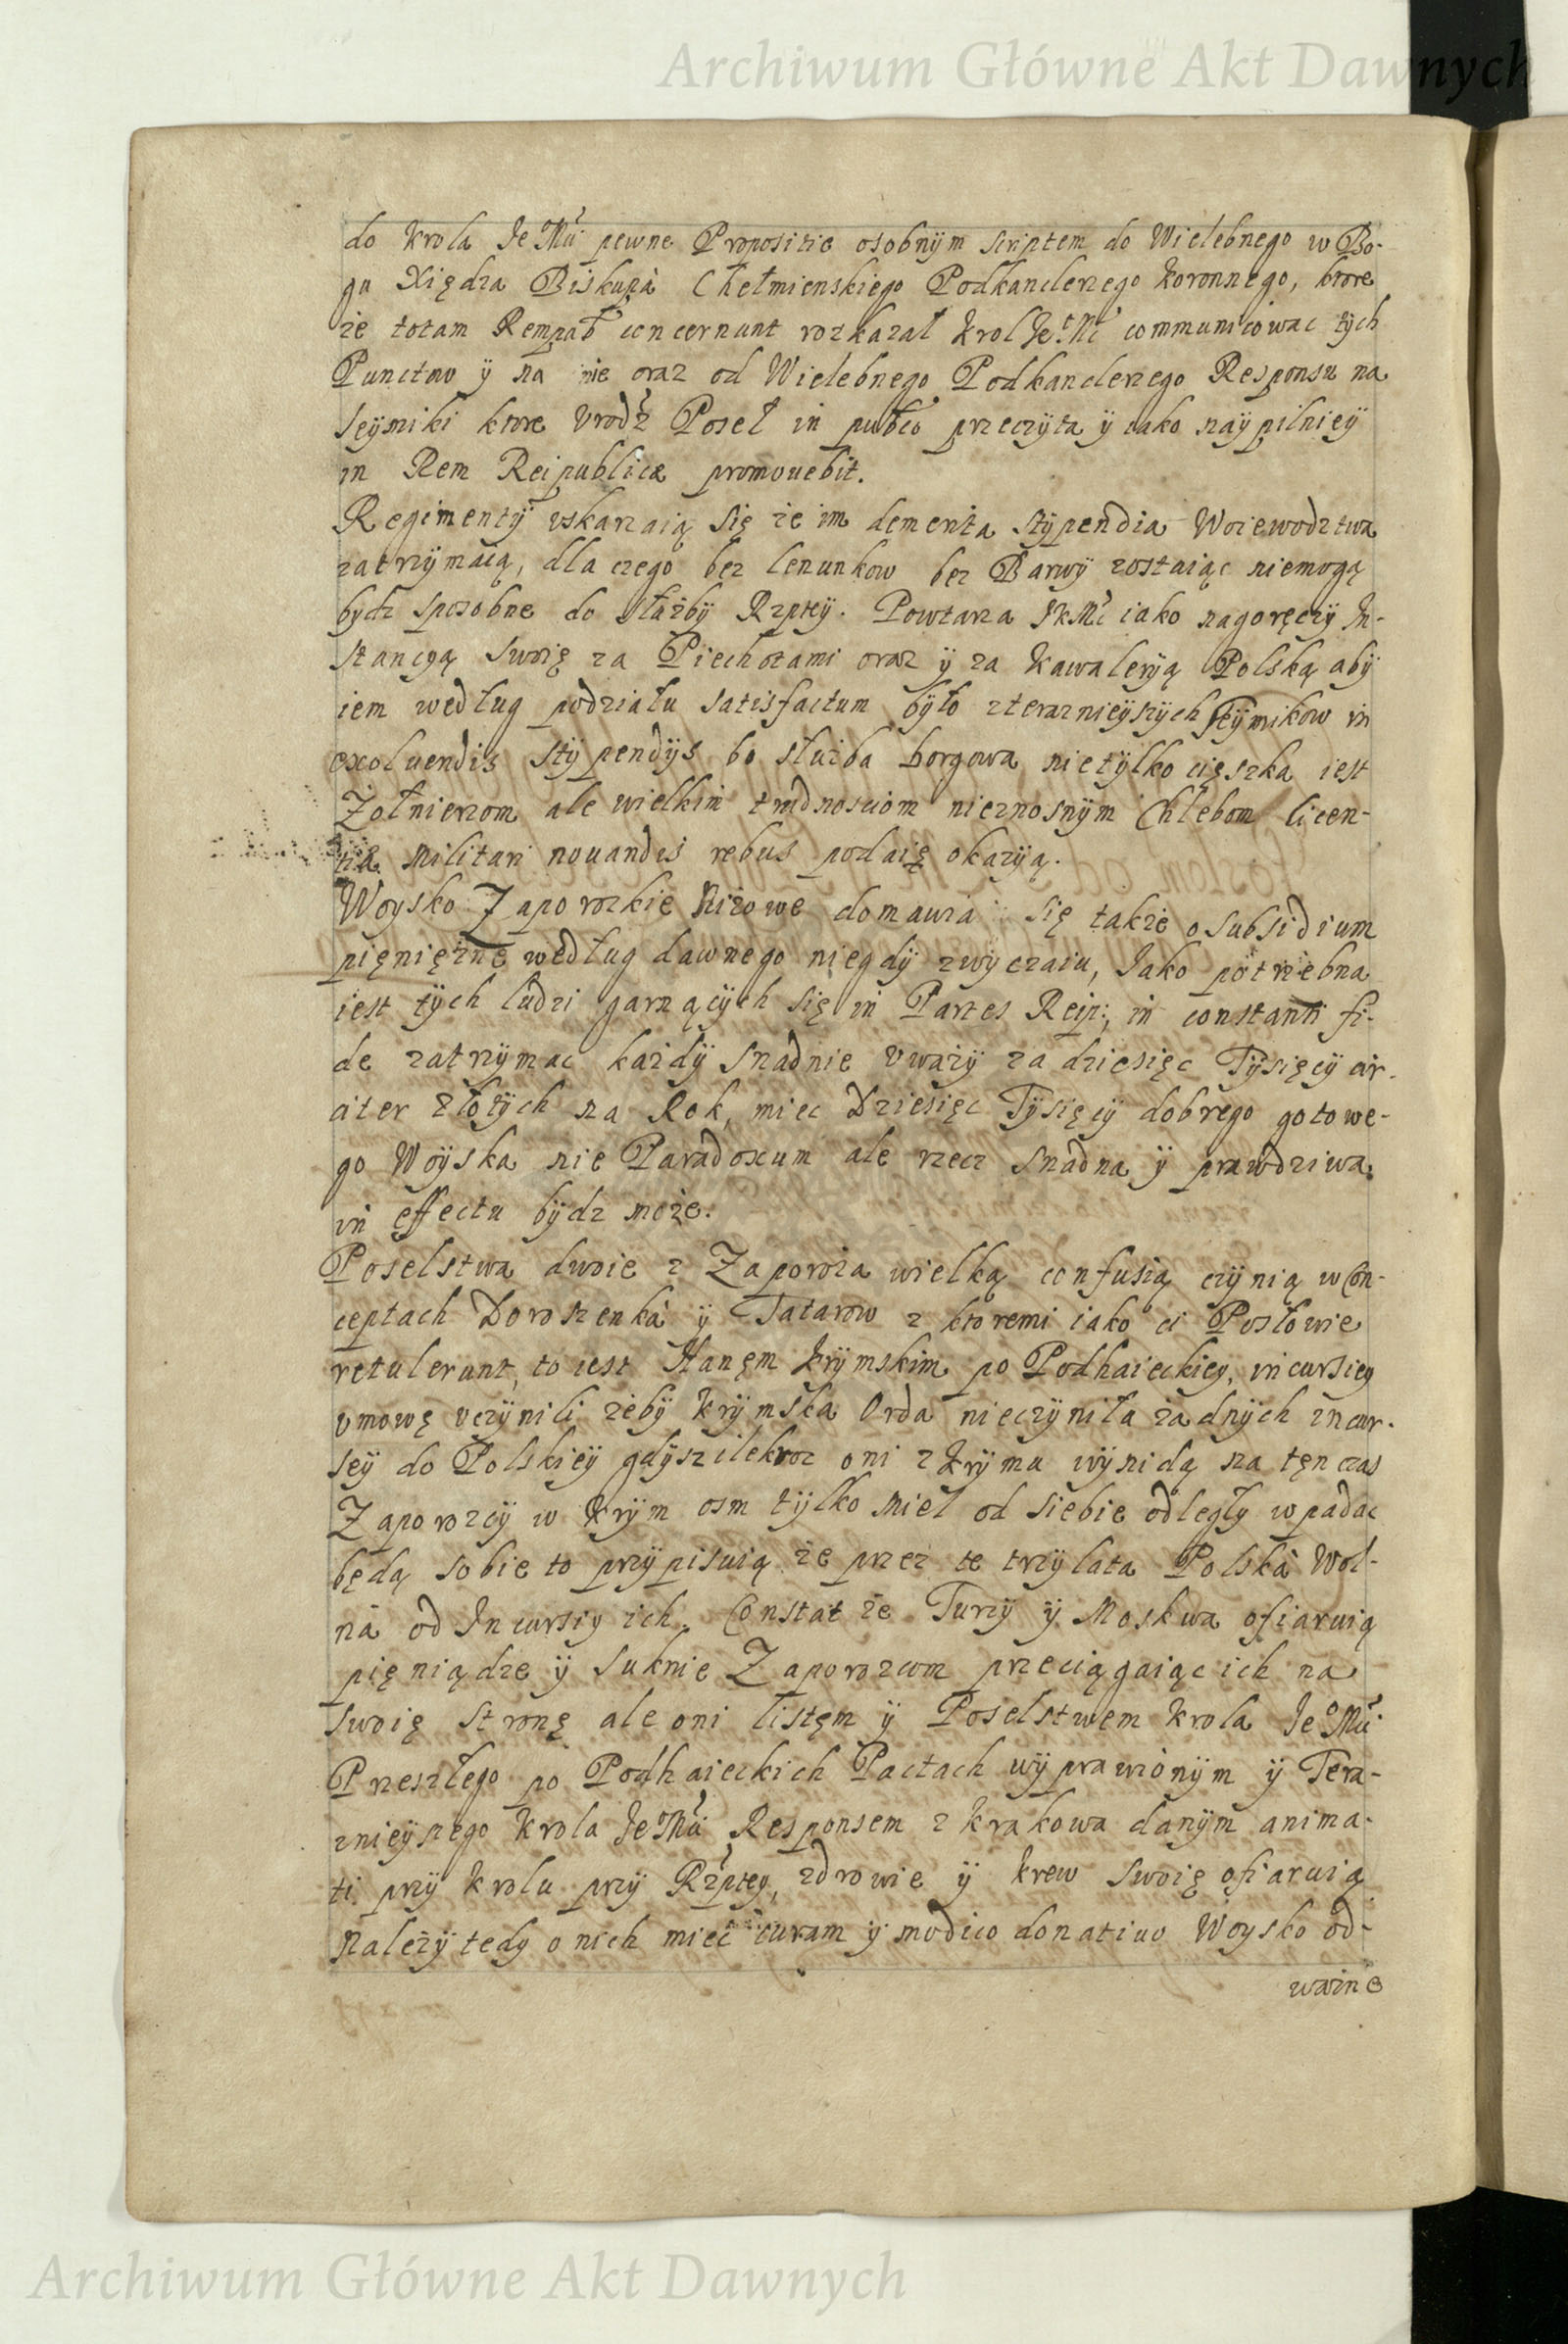 Archiwum Główne Akt Dawnych
do Krola Je Mći pewne Propositie osobnÿm scriptem do Wielebnego w Bo-
gu Xiędza Biskupa Chełmienskiego Podkanclerzego Koronnego, ktore
że totam Rempub concernunt rozkazał Krol Je Mć communicowac tÿch
Punctow ÿ na nie oraz od Wielebnego Podkanclerzego Responsu na
Seÿmiki ktore Urodz Poseł in publco przeczÿta ÿ iako naÿpilnieÿ
in Rem Reipublicæ promouebit.
Regimentÿ uskarzaią się że im demerita stÿpendia Woiewodztwa
zatrzÿmaią, dla czego bez lenunkow bez Barwÿ zostaiąc niemogą
bydz sposobne do służbÿ Rzpteÿ. Powtarza JKMć iako nagoręczÿ In-
stancyą Swoię za Piechotami oraz ÿ za Kawalerÿą Polską abÿ
iem według podziału satisfactum bÿło z terazniejszÿch Seÿmikow in
exoluendis stÿpendÿs bo służba borgowa nietÿlko cięszka iest
Żołnierzom ale wielkim trudnosciom nieznosnÿm Chlebom licen-
tia militari nouandis rebus podaię okazyą.
Woysko Zaporozkie Niżowe domawia się także o subsidium
pięniężne według dawnego niegdÿ zwÿczaiu, Jako potrzebna
iest tÿch ludzi garnącÿch się in Partes Reip:, in constanti fi-
de zatrzÿmac każdÿ snadnie uważÿ za dziesięc Tÿsięcÿ cir-
citer złotÿch na Rok, miec Dziesięc Tÿsięcÿ dobrego gotowe-
go Woÿska nie Paradoxum ale rzecz snadna ÿ prawdziwa
in effectu bÿdz może.
Poselstwa dwoie z Zaporoża wielką confusią czÿnią w Con-
ceptach Doroszenka ÿ Tatarow z ktoremi iako ci Posłowie
retulerunt, to iest Hanęm Krÿmskim po Podhaieckiey, incursiey
umowę uczÿnili żebÿ Krÿmska Orda nieczÿniła żadnÿch incur-
seÿ do Polskieÿ gdÿsz ilekroc oni z Krÿmu wÿnidą na tęn czas
Zaporozcÿ w Krÿm osm tÿlko mil od siebie odległÿ wpadac
będą sobie to przÿpisuią że przez te trzÿ lata Polska Wol-
na od Incursiy ich. Constat że Turcÿ ÿ Moskwa ofiaruią
pięniądze ÿ suknie Zaporozcom przeciągaiąc ich na
swoię stronę ale oni listęm ÿ Poselstwem Krola Je Mći
Przeszłego po Podhaieckich Pactach wÿprawionÿm ÿ Tera-
znieÿszego Krola Je Mći Responsem z Krakowa danÿm anima-
ti przÿ Krolu przÿ Rzptey, zdrowie ÿ krew swoię ofiaruią
Należÿ tedy o nich miec curam ÿ modico donatiuo Woysko od-
ważne
Archiwum Główne Akt Dawnych